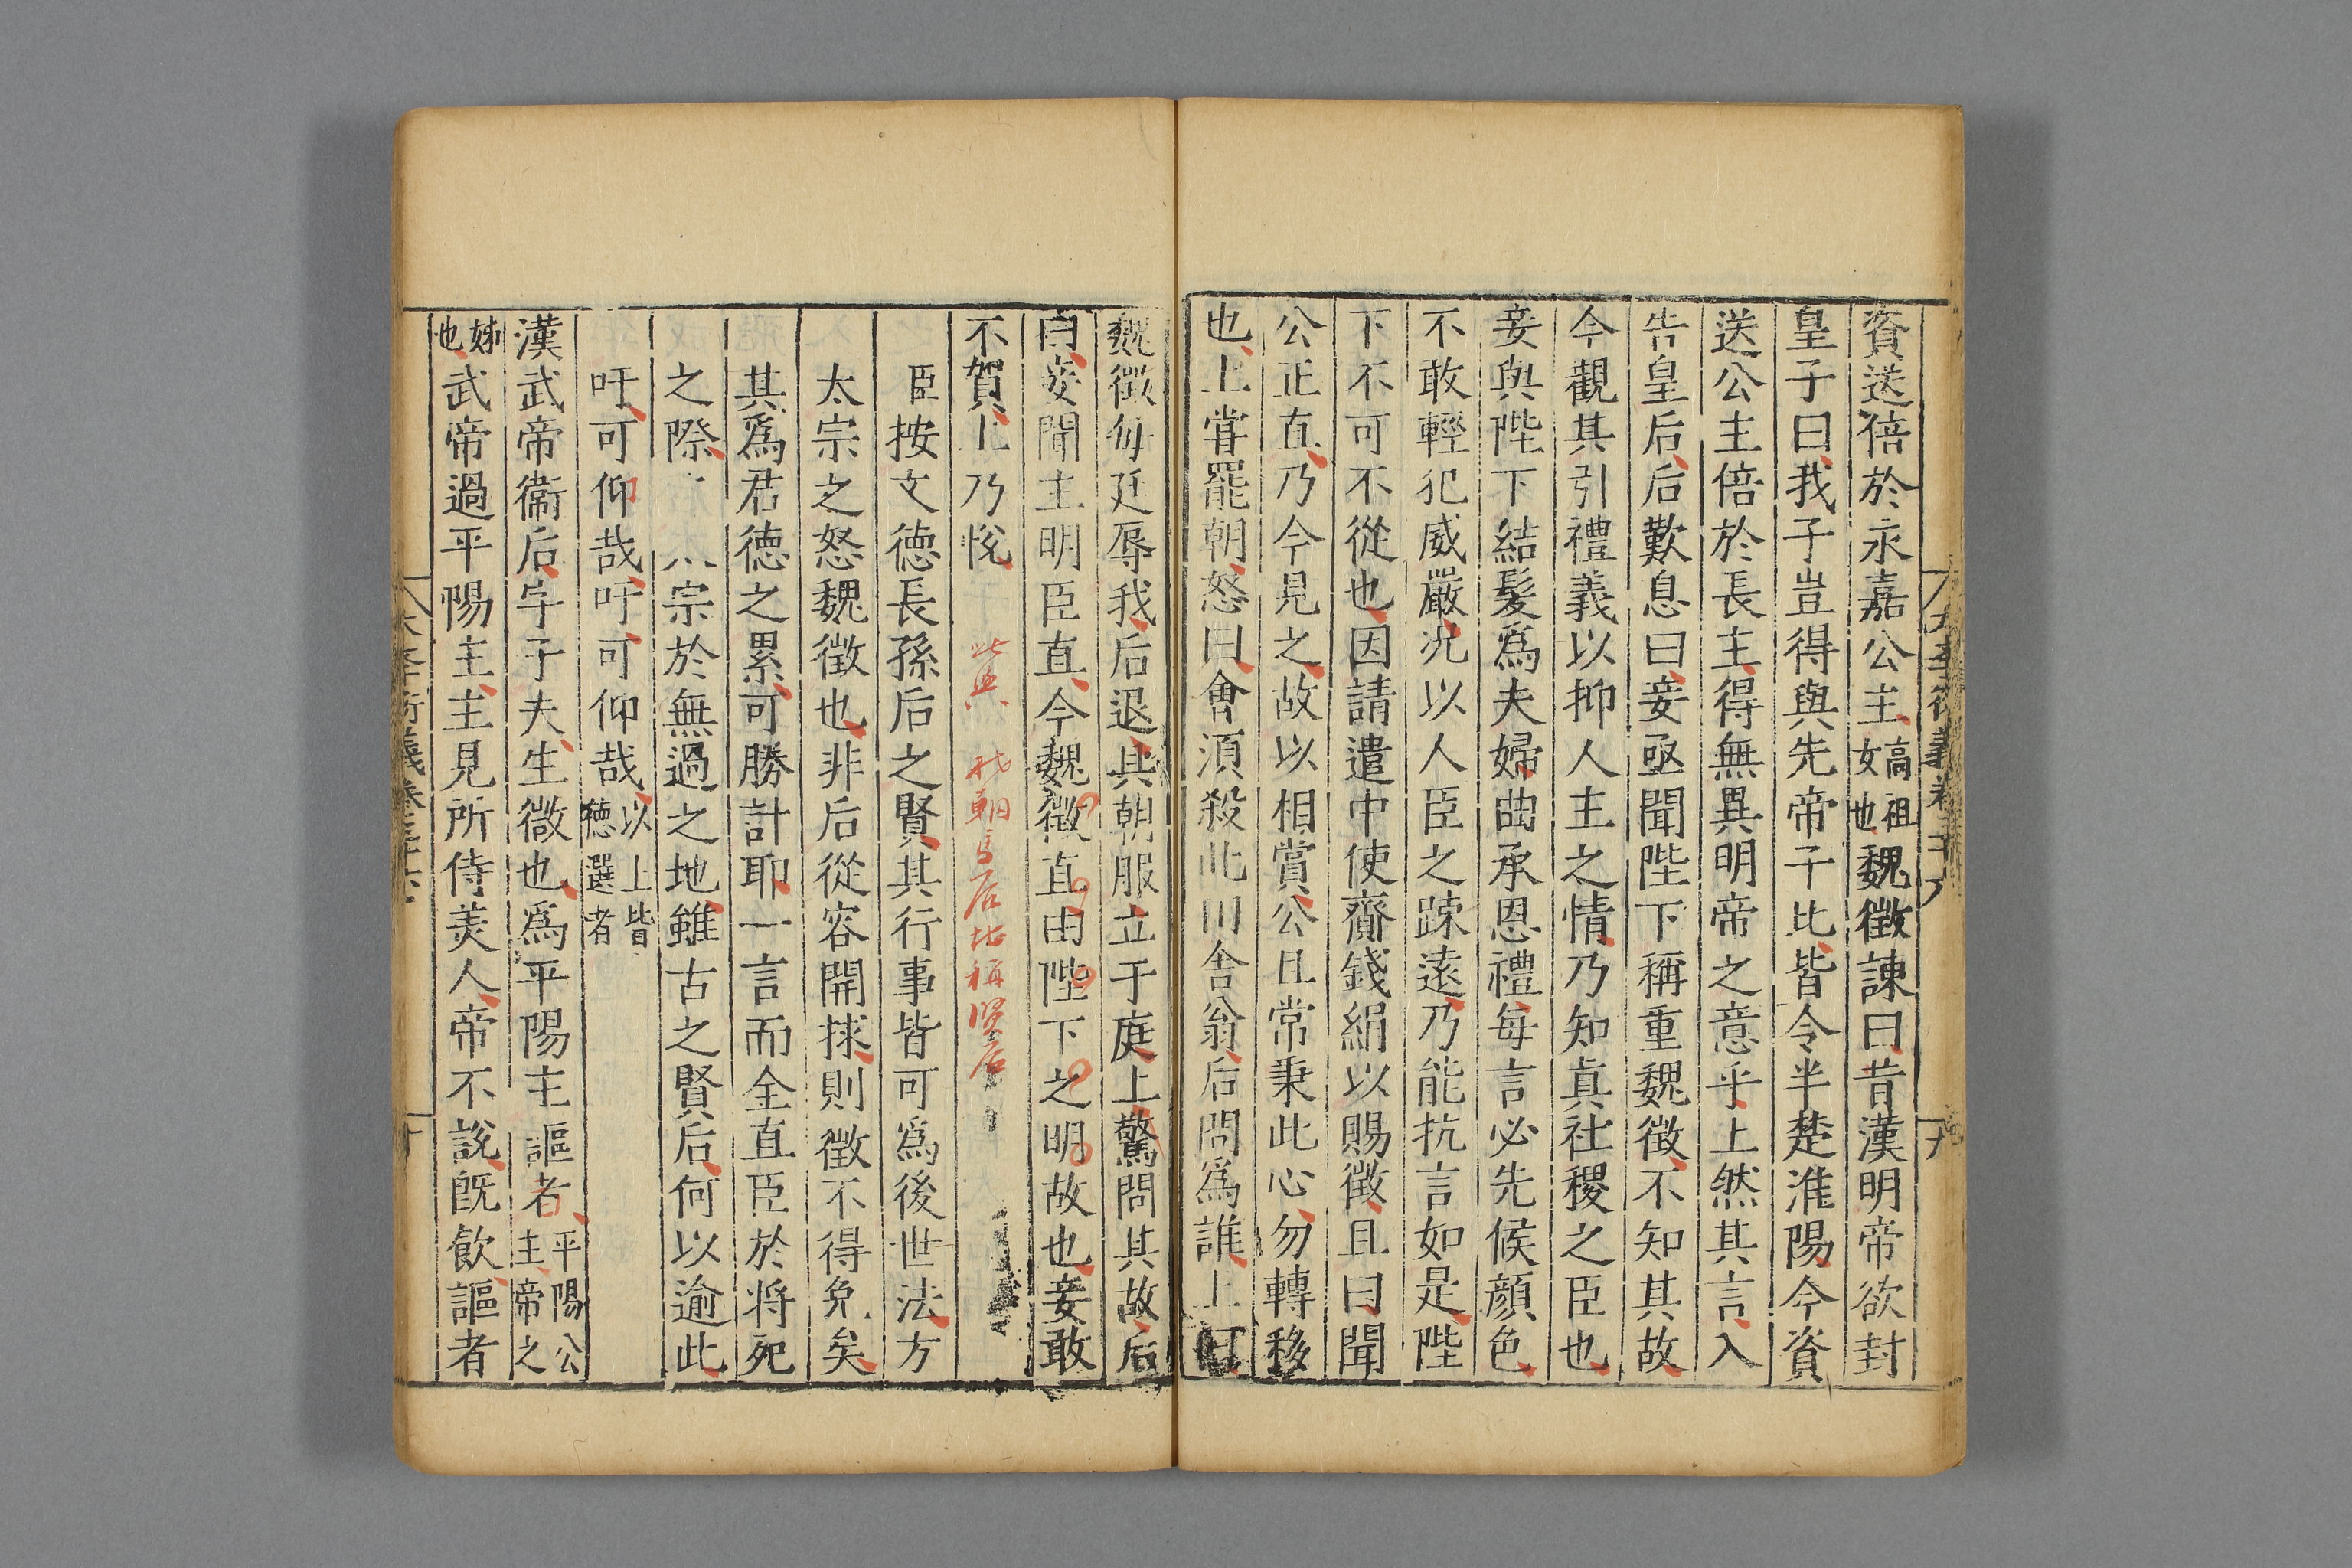 資送倍於永嘉公主高祖女也魏徵諫曰昔漢明帝欲封
皇子曰我子豈得與先帝子比皆令半楚淮陽今資
送公主倍於長主得無異明帝之意乎上然其言入
告皇后后歎息曰妾亟聞陛下稱重魏徵不知其故
今觀其引禮義以抑人主之情乃知真社稷之臣也
妾與陛下結髮爲夫婦曲承恩禮每言必先候顔色
不敢輕犯威嚴况以人臣之踈遠乃能抗言如是陛
下不可不從也因請遣中使齎錢絹以賜徵且曰聞
公正直乃今見之故以相賞公且常秉此心勿轉移
也上甞罷朝怒曰會湏殺此田舍翁后問爲誰上曰
魏徵每廷辱我后退具朝服立于庭上驚問其故后
曰妾聞主明臣直今魏徵直由陛下之明故也妾敢
不賀上乃悅
此與 我朝馬后
臣按文德長孫后之賢其行事皆可爲後世法方
太宗之怒魏徵也非后從容開捄則徵不得免矣
其爲君德之累可勝計耶一言而全直臣於將死
之際 宗於無過之地雖古之賢后何以逾此
吁可仰哉吁可仰哉以上皆德選者
漢武帝衞后字子夫生微也爲平陽主謳者平陽公主帝之
姊也武帝過平陽主主見所侍美人帝不說既飮謳者
大學衍義卷三十六
十